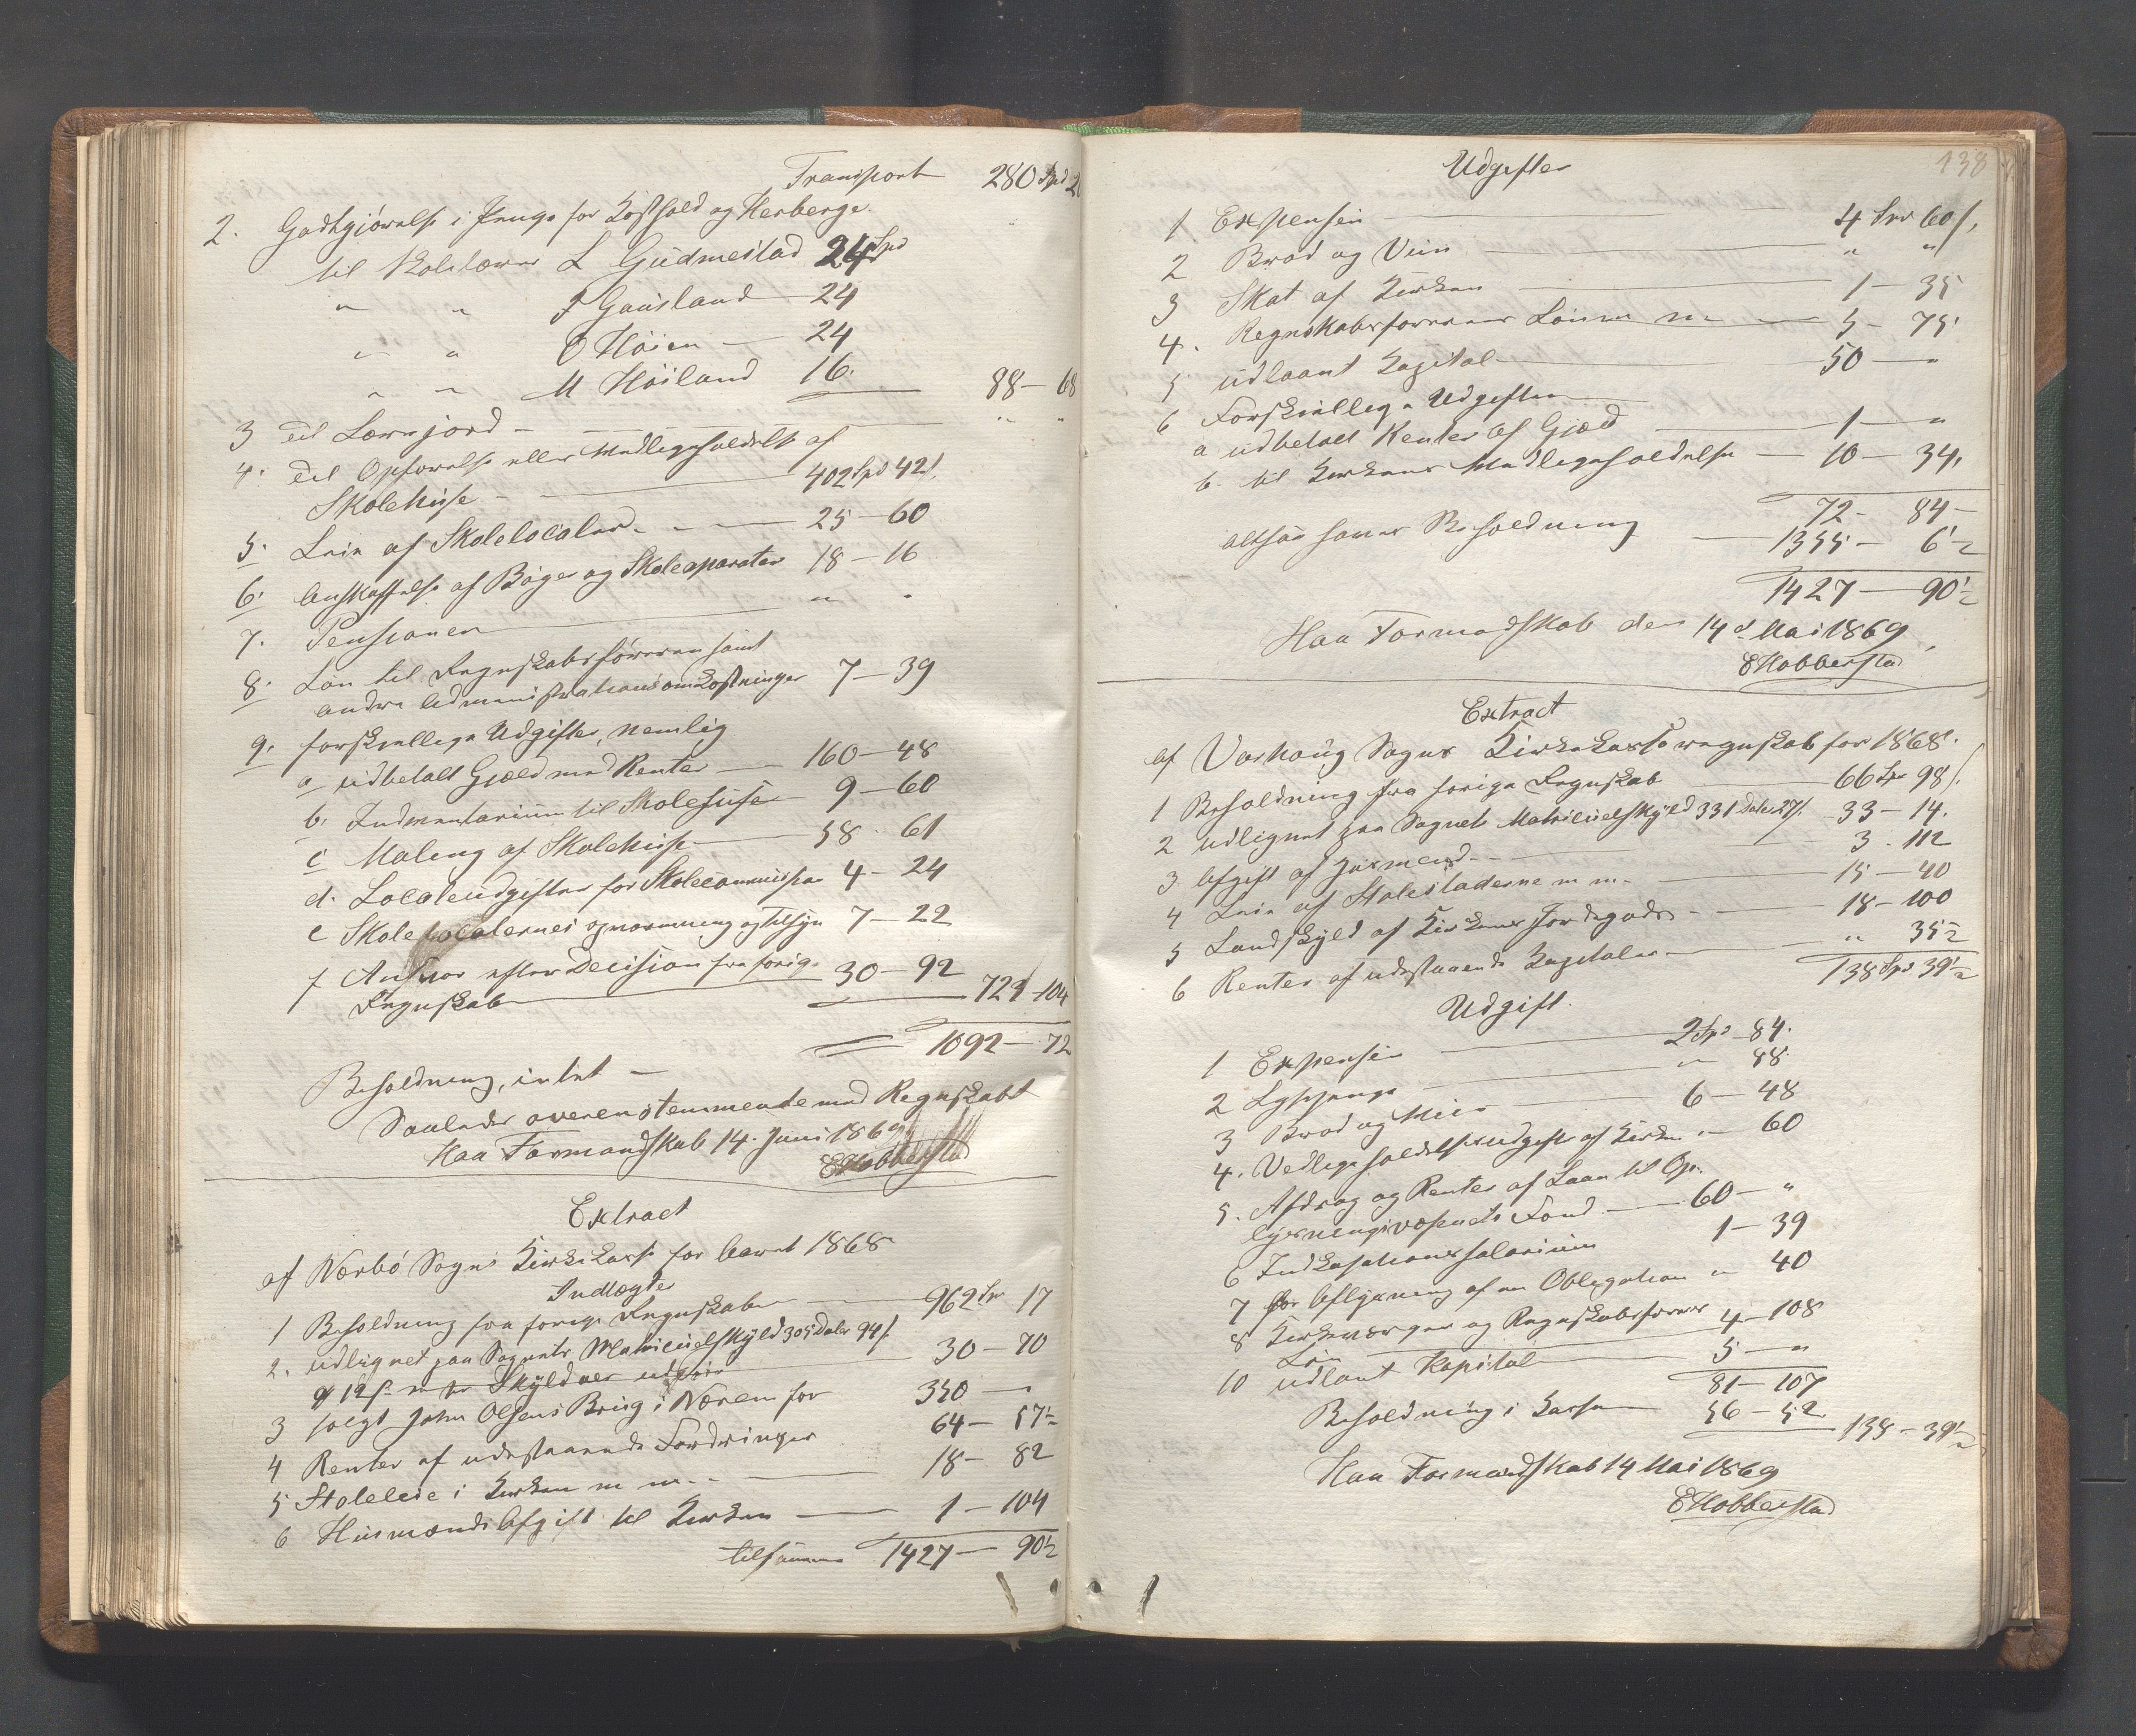 Transport 280 Spd 2
2. Godtgjørelse i Penge for Kosthold og Herberge
til Skolelærer L Gudmestad 24 Spd
" " F Gausland 24
" " O Höien — 24
" " M Höiland 16. 88 — 68
3 til Lærerjord — " "
4. til Opførelse eller Vedligeholdelse af
Skolehuse — 402 Spd 42 s.
5. Leie af Skolelocaler — 25 — 60
6. Anskaffelse af Böger og Skoleaparater 18 — 16
7. Pensioner — " "
8. Løn til Regnskabsføreren samt
andre Administrationsomkostninger 7 — 39
9. forskjellige Udgifter, nemlig
a udbetalt Gjæld med Renter — 160 — 48
b. Indventarium til Skolehuse 9 — 60
c Maling af Skolehuse — 58 . 61
d. Localeudgifter for Skolecommissionen 4 — 24
e Skolelocalernes opvarmning og Tilsyn 7 — 22
f Ansvar efter Decision fra forige
Regnskab — 30 — 92 723 — 104
1092 — 72
Beholdning, intet —
Saaledes overenstemmende med Regnskabet
Haa Formandskab 14. Juni 1869
E Hobberstad
Extract
af Nærbö Sogns Kirkekasse for Aaret 1868
Indtægter
1 Beholdning fra forige Regnskab — 962 Spd 17
2. udlignet paa Sognets Matriculskyld 305 Daler 94 s.
a 12 s. pr Skylddaler 30 — 70
3 solgt John Olsens Brug i Næren for 350 — "
4 Renter af udestaaende Fordringer 64 — 57½
5 Stoleleie i Kirken m m. — 18 — 82
6 Huusmænds Afgift til Kirken — 1 — 104
tilsammen 1427 — 90½
138
Udgifter
1 Expensin — 4 Spd 60 s.
2 Brød og Viin — " "
3 Skat af Kirken — 1 — 35
4. Regnskabsførerens Løn m m — 5 — 75
5 udlaant Kapital — 50 — "
6 Forskjellige Udgifter
a udbetalt Renter af Gjæld — 1 — "
b. til Kirkens Vedligeholdelse — 10 — 34.
72 — 84 —
altsaa havees Beholdning — 1355 — 6½
1427 — 90½
Haa Formandskab den 14de Mai 1869
E Hobberstad
Extract
af Varhoug Sogns Kirkekasseregnskab for 1868.
1 Beholdning fra forige Regnskab — 66 Spd 98 s.
2 udlignet paa Sognets Matriculskyld 331 Daler 27 s. 33 — 14.
3 Afgift af Huusmænd — 3 . 112
4 Leie af Stolestaderne m m. — 15 — 40
5 Landskyld af Kirkens Jordegods — 18 — 100
6 Renter af udestaaende Kapitaler — " 35½
138 Spd 39½
Udgift.
1 Expensin — 2 Spd — 84.
2 Lyspenge — " 88.
3 Brød og Viin — 6 — 48
4. Vedligeholdelsesudgifter af Kirken " — 60
5. Afdrag og Renter af Laan til Op-
lysningsvæsenets Fond — 60 — "
6 Indkasationssalarium 1 — 39
7 for Aflysning af en Obligation " 40
8 Kirkeværger og Regnskabsførers
Løn 4 — 108
10 udlaant Kapital — 5 — "
81 — 107
Beholdning i Kassen — 56 — 52 138 — 39½
Haa Formandskab 14 Mai 1869
E Hobberstad